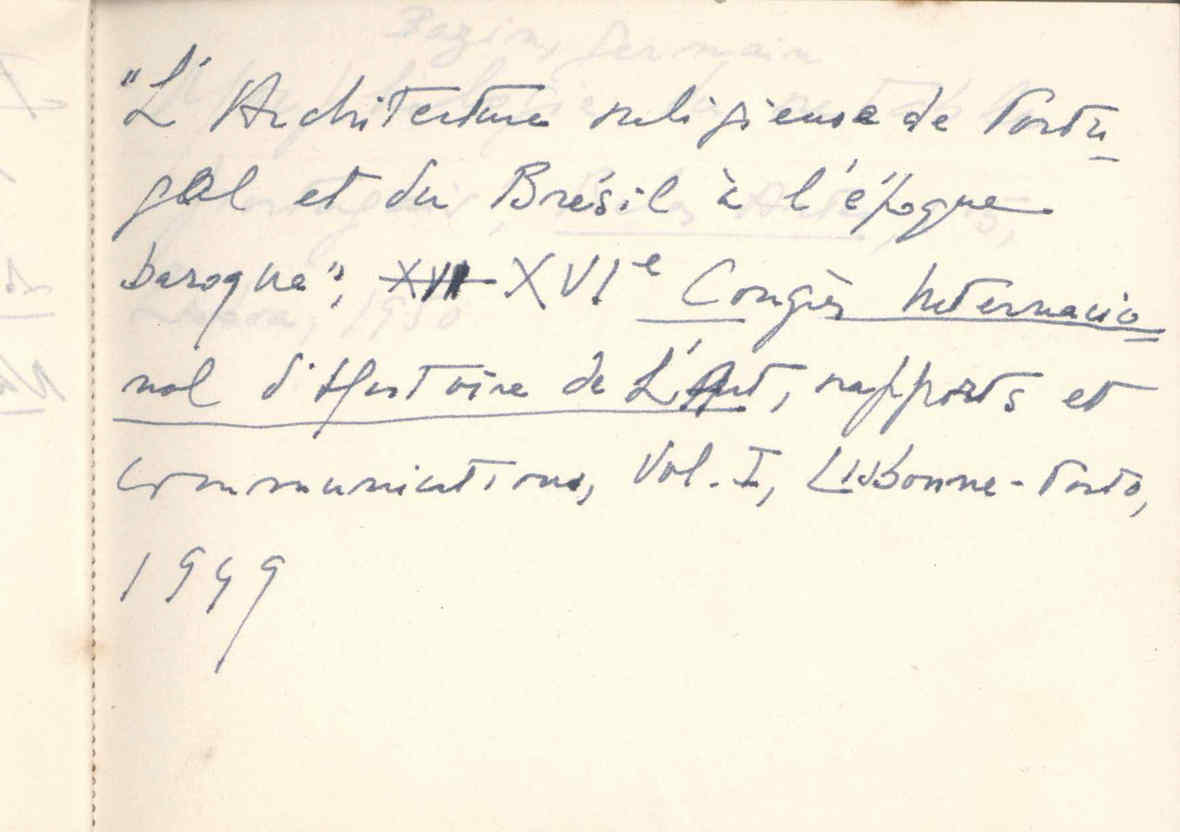 "L'Architecture religieuse de Portu-
gal et du Brésil à l'époque
baroque", XVII XVIe Congrès Internacio=
nal d'Histoire de L'Art, rapports et
communications, Vol. I, Lisbonne-Porto,
1949